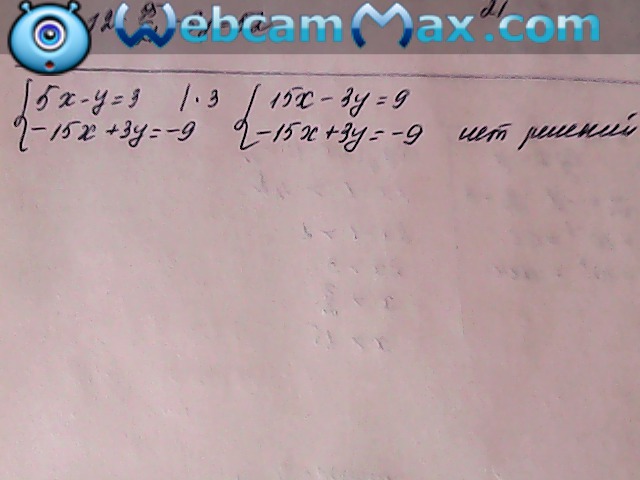 WebcamMax.com
21
{ 5x - y = 3 | · 3 { 15x - 3y = 9
{ -15x + 3y = -9 { -15x + 3y = -9 нет решений